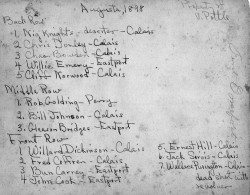 Augusta, 1898
Property of
Back Row
1. King Knights - deserter - Calais
2. Chris Tooley - Calais
3. Chas. - Calais
4. Willie Emery - Eastport
5. Cliff Norwood - Calais
Middle Row
1. Rob Golding - Perry
2. Bill Johnson - Calais
3. Gleason Bridges - Eastport
Front Row
1. Willard Dickinson - Calais
2. Fred Cohren - Calais
3. Bun Carvey - Eastport
4. John Cook - Eastport
5. Ernest Hill - Calais
6. Jack Sirois - Calais
7. Wallace Purington - Calais
dead shot with